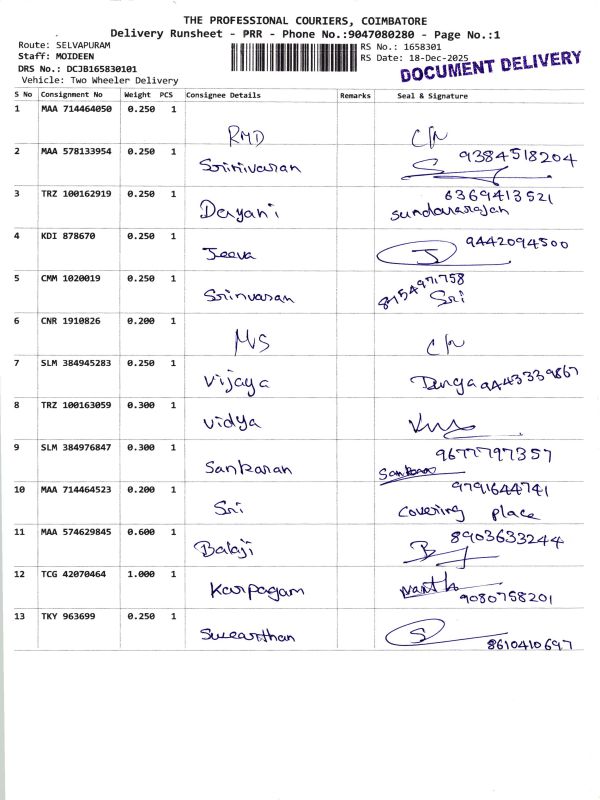 THE PROFESSIONAL COURIERS, COIMBATORE
Delivery Runsheet - PRR - Phone No.:9047080280 - Page No.:1
Route: SELVAPURAM
RS No.: 1658301
Staff: MOIDEEN
RS Date: 18-Dec-2025
DOCUMENT DELIVERY
DRS No.: DCJB165830101
Vehicle: Two Wheeler Delivery
S No Consignment No Weight PCS Consignee Details Remarks Seal & Signature
1 MAA 714464050 0.250 1
RMD
2 MAA 578133954 0.250 1 Srinivasan 9384518204
3 TRZ 100162919 0.250 1 Dayani 6369413521
sundararajan
4 KDI 878670 0.250 1 Jeeva J 9442094500
5 CMM 1020019 0.250 1 Srinvasan 8154971758
Sri
6 CNR 1910826 0.200 1
MS
7 SLM 384945283 0.250 1 Vijaya 9443339867
8 TRZ 100163059 0.300 1 Vidya
9 SLM 384976847 0.300 1 Sankaran 9677797357
10 MAA 714464523 0.200 1 Sri 9791644741
Covering place
11 MAA 574629845 0.600 1 Balaji B 8903633244
12 TCG 42070464 1.000 1 Karpagam
9080758201
13 TKY 963699 0.250 1 S
8610410697